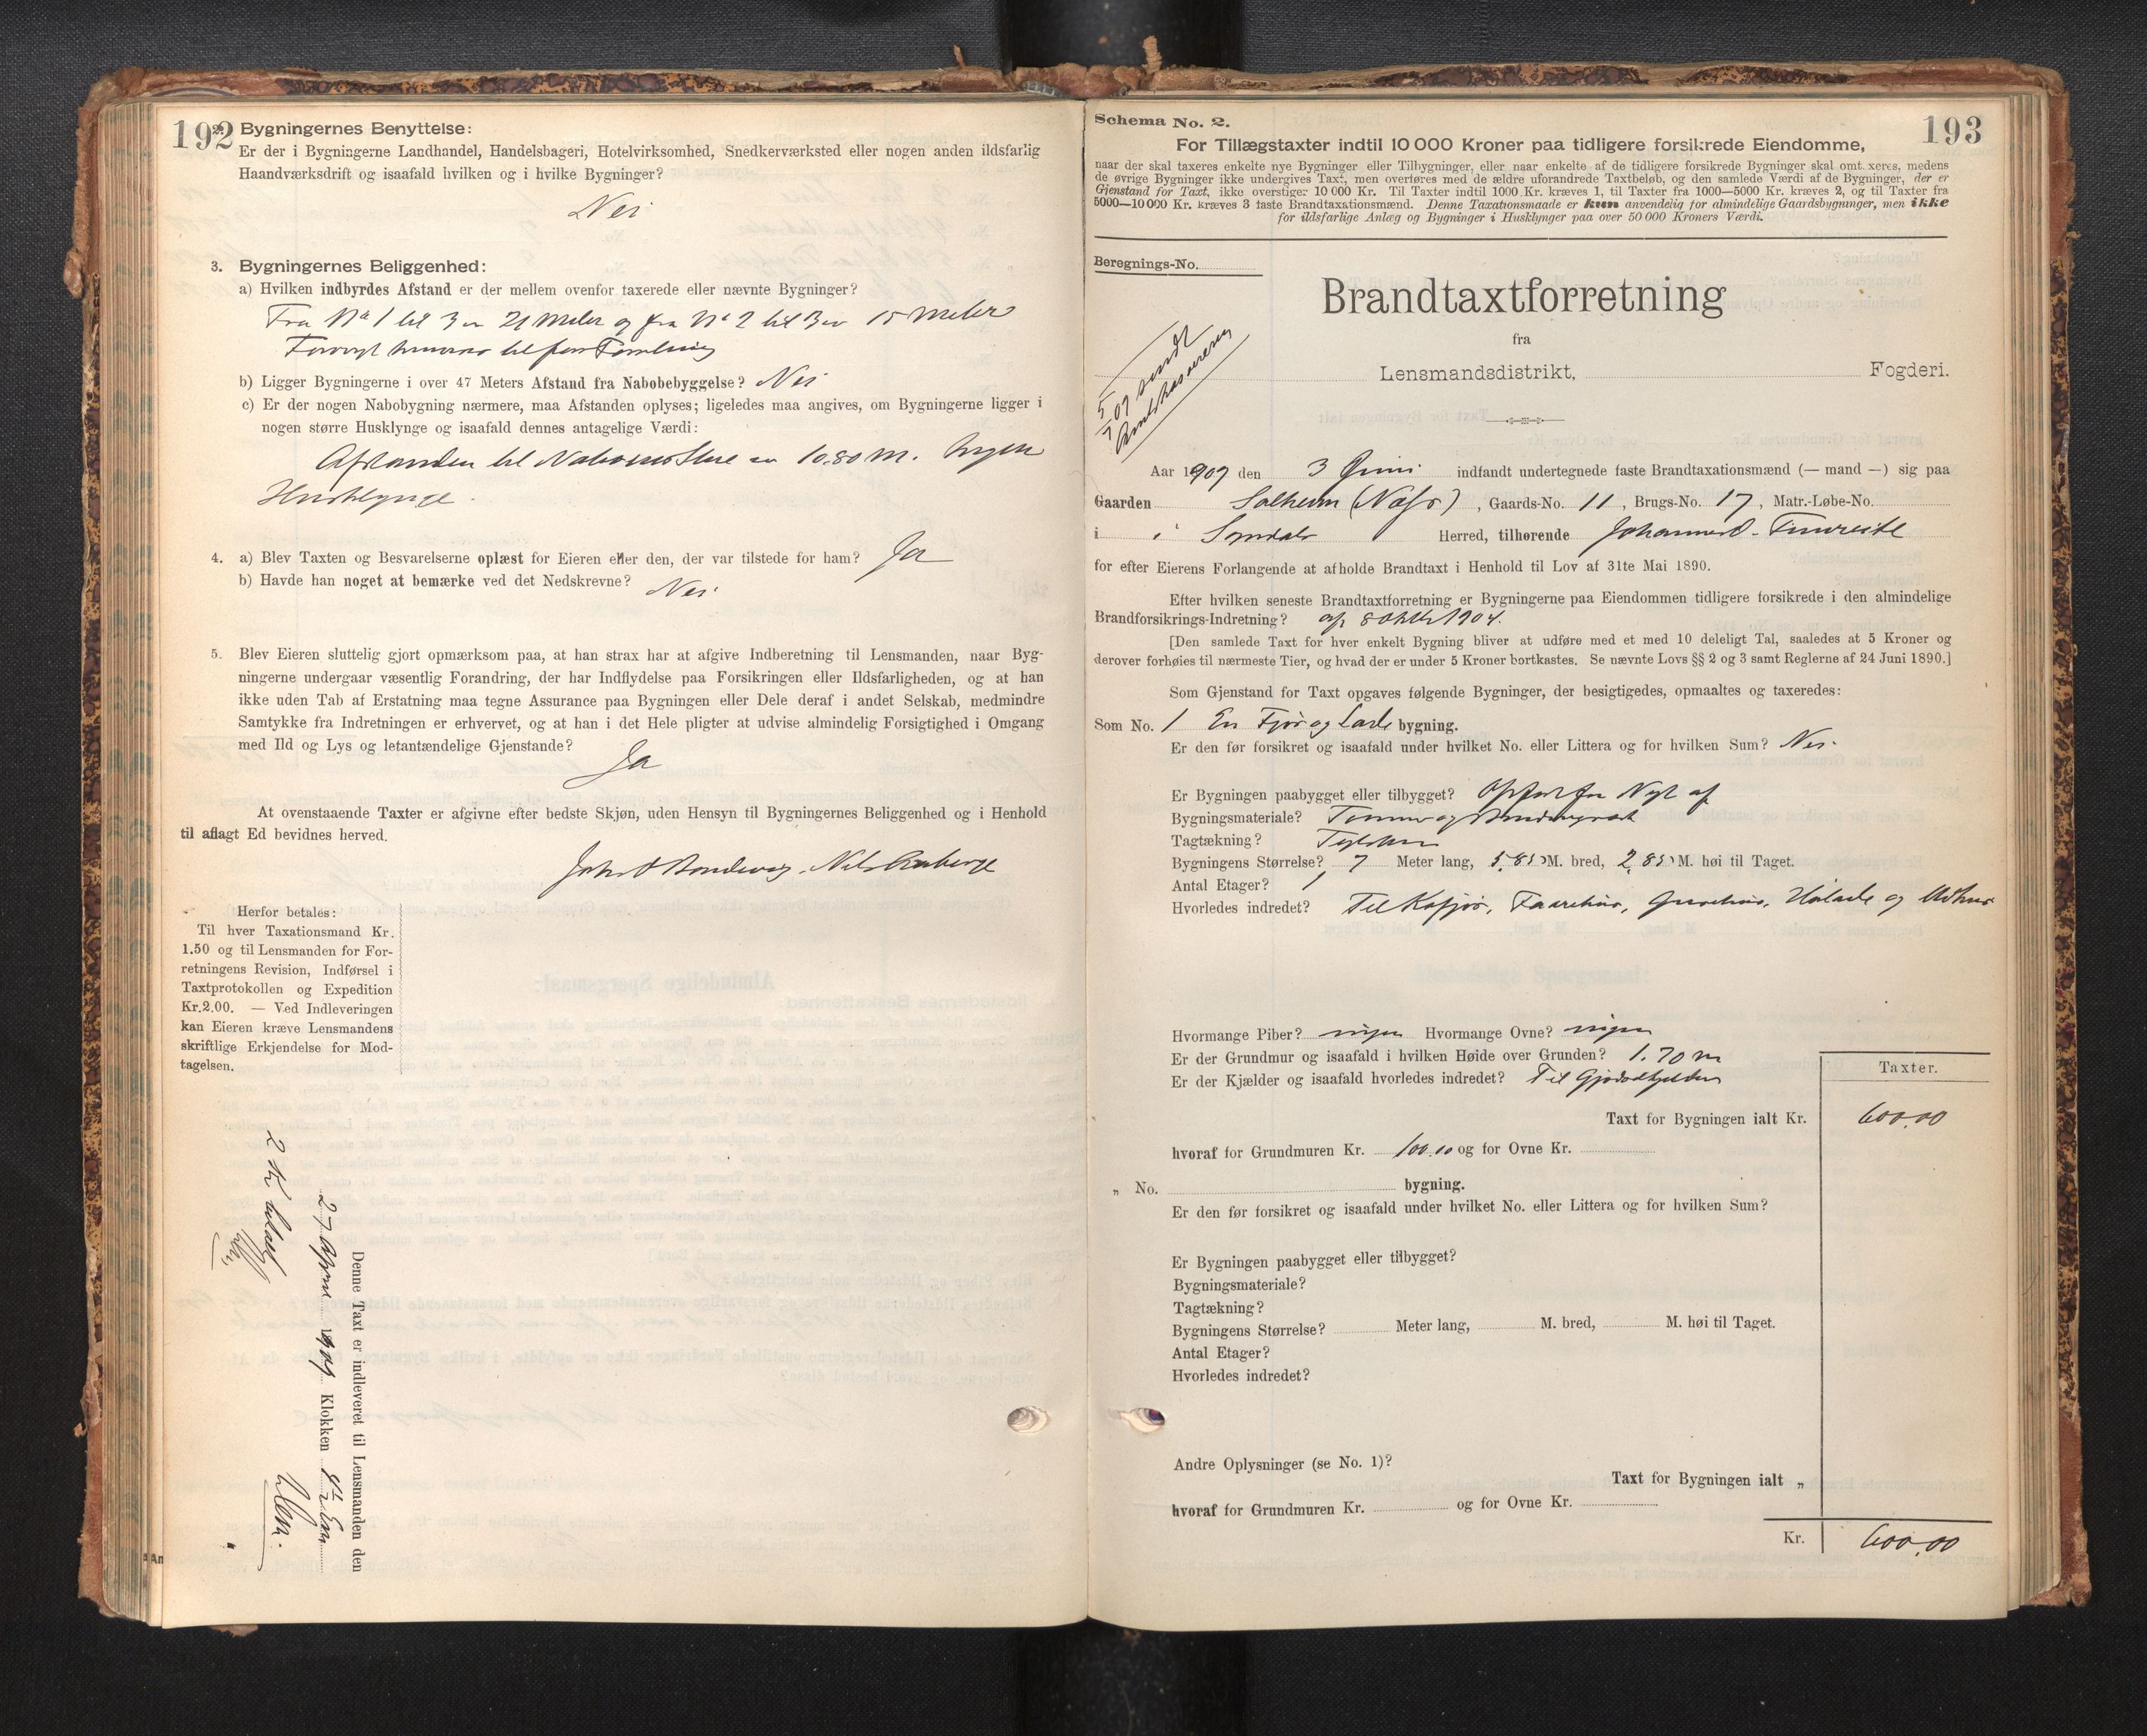 192
2. Bygningernes Benyttelse:
Er der i Bygningerne Landhandel, Handelsbageri, Hotelvirksomhed, Snedkerværksted eller nogen anden ildsfarlig
Haandværksdrift og isaafald hvilken og i hvilke Bygninger?
Nei
3. Bygningernes Beliggenhed:
a) Hvilken indbyrdes Afstand er der mellem ovenfor taxerede eller nævnte Bygninger?
Fra No 1 til 3 er 21 Meter og fra No 2 til 3 er 15 Meter
b) Ligger Bygningerne i over 47 Meters Afstand fra Nabobebyggelse? Nei
c) Er der nogen Nabobygning nærmere, maa Afstanden oplyses; ligeledes maa angives, om Bygningerne ligger i
nogen større Husklynge og isaafald dennes antagelige Værdi:
Afstanden til Naboens er 10.80 M. Ingen
Husklynge.
4. a) Blev Taxten og Besvarelserne oplæst for Eieren eller den, der var tilstede for ham? Ja
b) Havde han noget at bemærke ved det Nedskrevne? Nei
5. Blev Eieren sluttelig gjort opmærksom paa, at han strax har at afgive Indberetning til Lensmanden, naar Byg-
ningerne undergaar væsentlig Forandring, der har Indflydelse paa Forsikringen eller Ildsfarligheden, og at han
ikke uden Tab af Erstatning maa tegne Assurance paa Bygningen eller Dele deraf i andet Selskab, medmindre
Samtykke fra Indretningen er erhvervet, og at han i det Hele pligter at udvise almindelig Forsigtighed i Omgang
med Ild og Lys og letantændelige Gjenstande?
Ja
At ovenstaaende Taxter er afgivne efter bedste Skjøn, uden Hensyn til Bygningernes Beliggenhed og i Henhold
til aflagt Ed bevidnes herved.
Herfor betales:
Til hver Taxationsmand Kr.
1.50 og til Lensmanden for For-
retningens Revision, Indførsel i
Taxtprotokollen og Expedition
Kr. 2.00. — Ved Indleveringen
kan Eieren kræve Lensmandens
skriftlige Erkjendelse for Mod-
tagelsen.
Denne Taxt er indleveret til Lensmanden den
27 April 1907 Klokken
2 Kr betalt
193
Schema No. 2.
For Tillægstaxter indtil 10 000 Kroner paa tidligere forsikrede Eiendomme,
naar der skal taxeres enkelte nye Bygninger eller Tilbygninger, eller naar enkelte af de tidligere forsikrede Bygninger skal omtaxeres, medens
de øvrige Bygninger ikke undergives Taxt, men overføres med de ældre uforandrede Taxtbeløb, og den samlede Værdi af de Bygninger, der er
Gjenstand for Taxt, ikke overstiger 10 000 Kr. Til Taxter indtil 1000 Kr. kræves 1, til Taxter fra 1000—5000 Kr. kræves 2, og til Taxter fra
5000—10 000 Kr. kræves 3 faste Brandtaxationsmænd. Denne Taxationsmaade er kun anvendelig for almindelige Gaardsbygninger, men ikke
for ildsfarlige Anlæg og Bygninger i Husklynger paa over 50 000 Kroners Værdi.
Beregnings-No.
Brandtaxtforretning
fra
Lensmandsdistrikt, Fogderi.
5/7 07 sendt
Aar 1907 den 3 Juni indfandt undertegnede faste Brandtaxationsmænd (— mand —) sig paa
Gaarden Solheim , Gaards-No. 11 , Brugs-No. 17 , Matr.-Løbe-No.
i i Herred, tilhørende Johannes
for efter Eierens Forlangende at afholde Brandtaxt i Henhold til Lov af 31te Mai 1890.
Efter hvilken seneste Brandtaxtforretning er Bygningerne paa Eiendommen tidligere forsikrede i den almindelige
Brandforsikrings-Indretning? af 8 Oktbr 1904.
[Den samlede Taxt for hver enkelt Bygning bliver at udføre med et med 10 deleligt Tal, saaledes at 5 Kroner og
derover forhøies til nærmeste Tier, og hvad der er under 5 Kroner bortkastes. Se nævnte Lovs §§ 2 og 3 samt Reglerne af 24 Juni 1890.]
Som Gjenstand for Taxt opgaves følgende Bygninger, der besigtigedes, opmaaltes og taxeredes:
Som No. 1 En Fjøs og Lade bygning.
Er den før forsikret og isaafald under hvilket No. eller Littera og for hvilken Sum? Nei.
Er Bygningen paabygget eller tilbygget? Opført fra Nyt af
Bygningsmateriale? Tømmer og Bindingsverk
Tagtækning? Teglsten
Bygningens Størrelse? 7 Meter lang, 5,85 M. bred, 2,85 M. høi til Taget.
Antal Etager? 1
Hvorledes indredet? Til Kofjøs, Faarehus, Grisehus, Hølade og Udhus
Hvormange Piber? ingen Hvormange Ovne? ingen
Er der Grundmur og isaafald i hvilken Høide over Grunden? 1.70 m
Er der Kjælder og isaafald hvorledes indredet? Til Gjødselkjelder
Taxter.
Taxt for Bygningen ialt Kr. 600.00
hvoraf for Grundmuren Kr. 100.00 og for Ovne Kr.
„ No. bygning.
Er den før forsikret og isaafald under hvilket No. eller Littera og for hvilken Sum?
Er Bygningen paabygget eller tilbygget?
Bygningsmateriale?
Tagtækning?
Bygningens Størrelse? Meter lang, M. bred, M. høi til Taget.
Antal Etager?
Hvorledes indredet?
Andre Oplysninger (se No. 1)?
Taxt for Bygningen ialt „
hvoraf for Grundmuren Kr. og for Ovne Kr.
Kr. 600.00